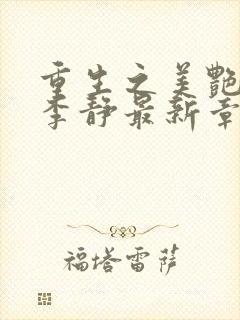 重生之美艳
李静最新章
福塔雷萨